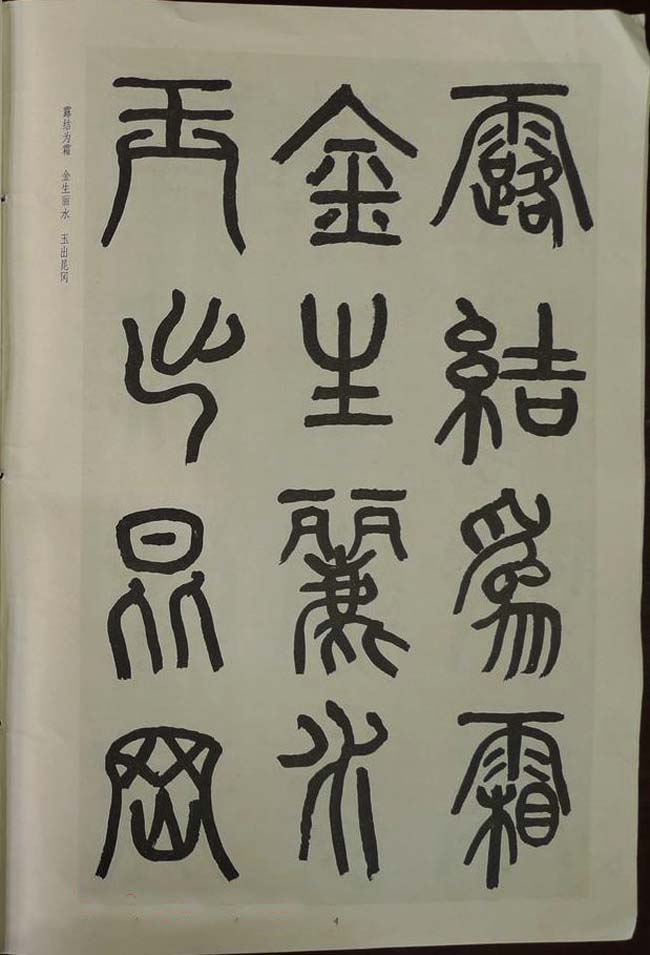 露結為霜
金生麗水
玉出昆岡
露结为霜 金生丽水 玉出昆冈
4